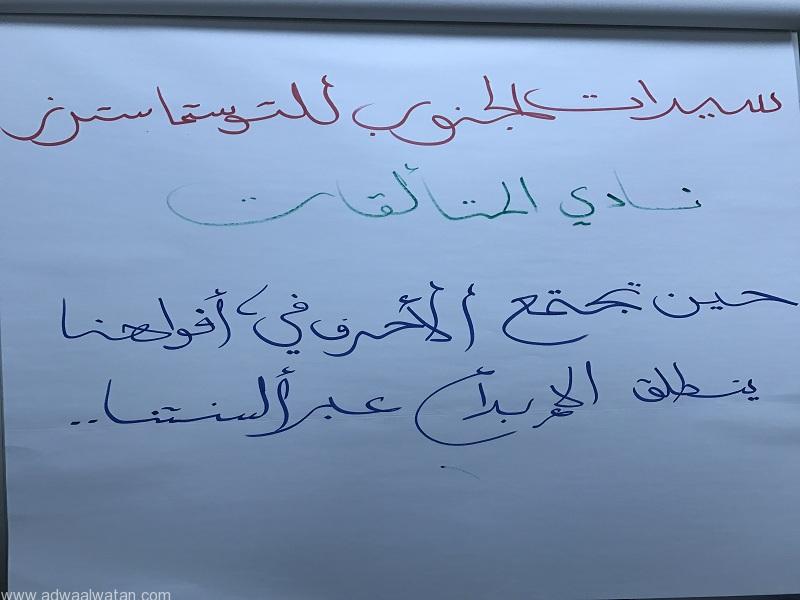 سيدات الجنوب للتوستماسترز
نادي المتألقات
حين تجتمع الأحرف في أفواهنا
ينطلق الإبداع عبر ألسنتنا..
www.adwaalwatan.com